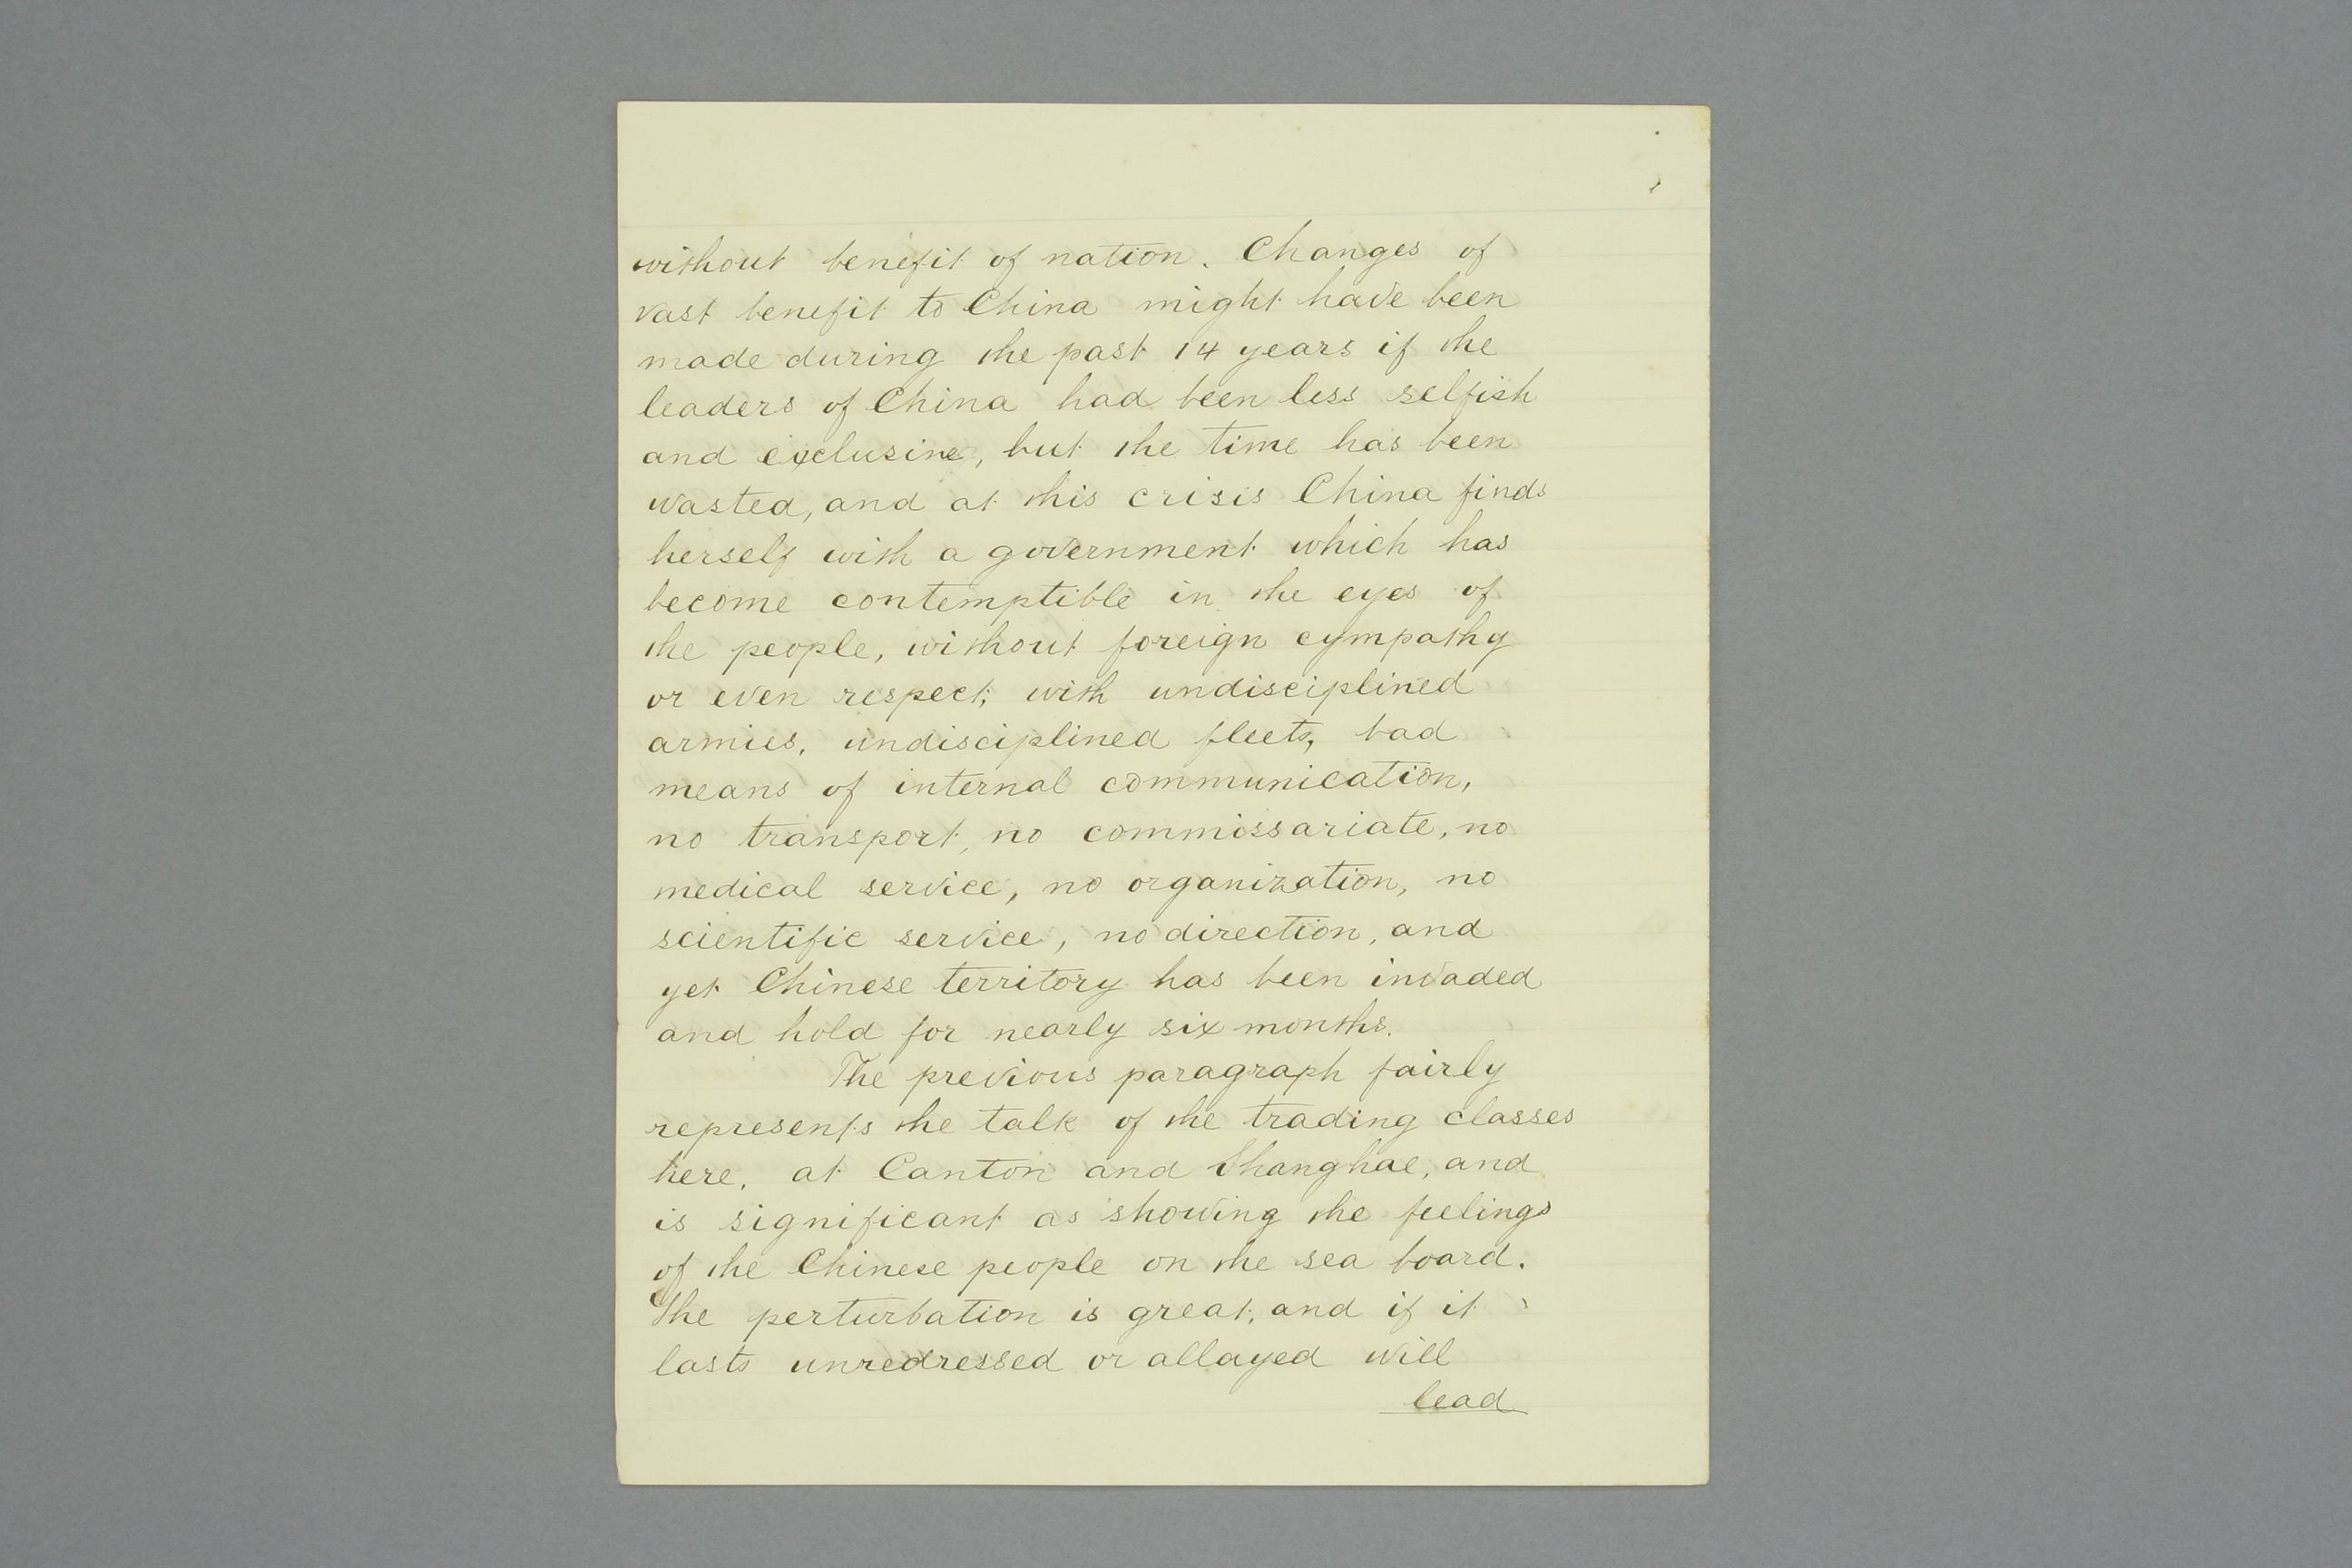 without benefit of nation. Changes of
vast benefit to China might have been
made during the past 14 years if the
leaders of China had been less selfish
and exclusive, but the time has been
wasted, and at this crisis China finds
herself with a government which has
become contemptible in the eyes of
the people, without foreign cympathy
or even respect; with undisciplined
armies, undisciplined fleets, bad
means of internal communication,
no transport, no commissariate, no
medical service, no organization, no
scientific service, no direction, and
yet Chinese territory has been invaded
and hold for nearly six months.
The previous paragraph fairly
represents the talk of the trading classes
here, at Canton and Shanghae, and
is significant as showing the feelings
of the Chinese people on the sea board.
The perturbation is great, and if it
lasts unredressed or allayed will
lead